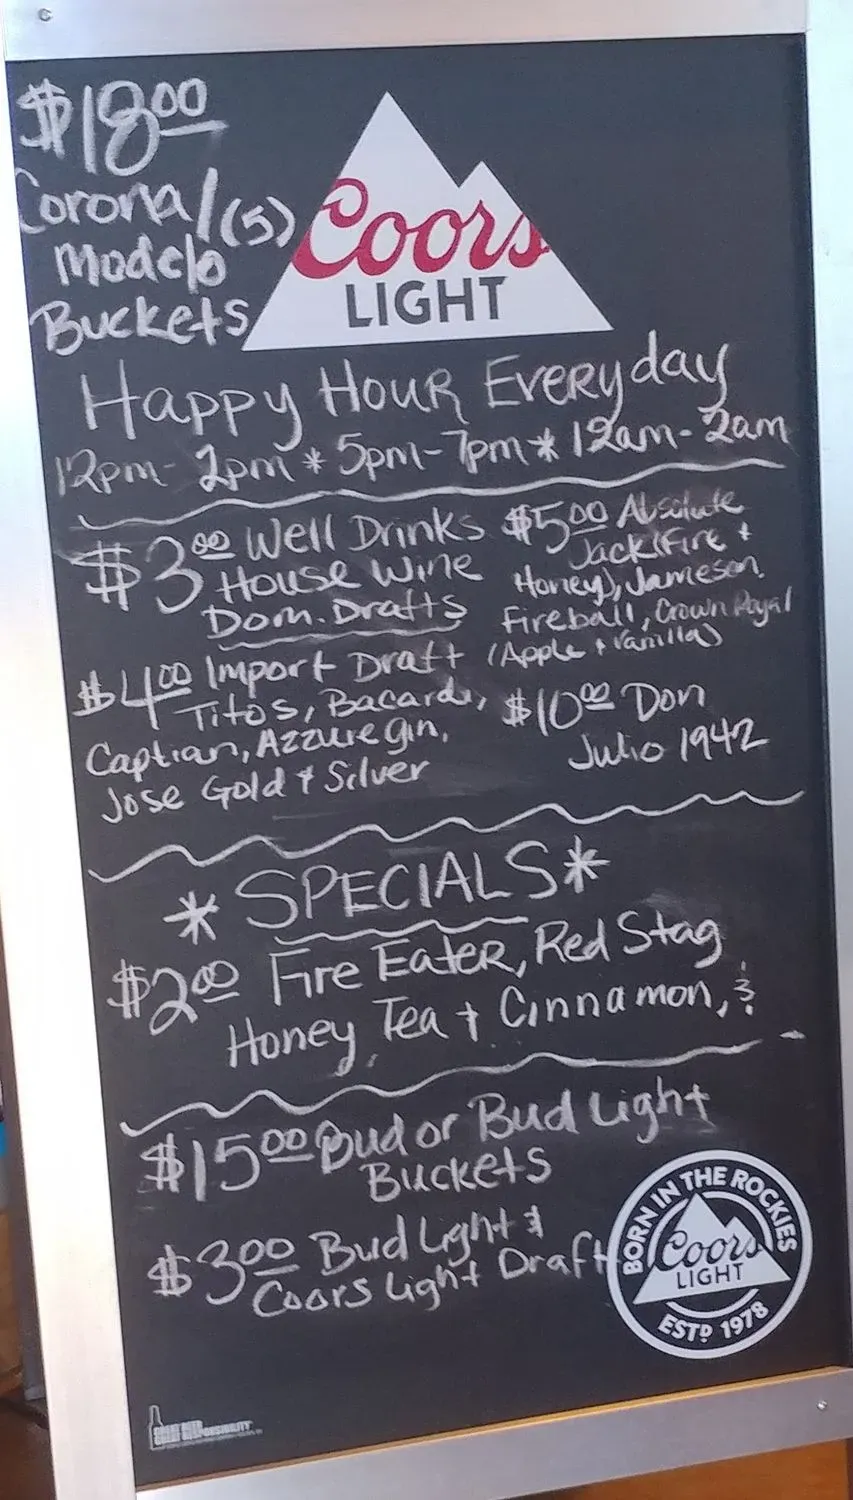 $18.00
Corona/(5)
Modelo
Buckets
Coors
LIGHT
Happy Hour Everyday
12pm-2pm * 5pm-7pm * 12am-2am
$3.00 Well Drinks
House Wine
Dom. Drafts
$4.00 Import Draft
Titos, Bacardi,
Captian, Azzure gin,
Jose Gold & Silver
$5.00 Absolute
Jack(Fire +
Honey), Jameson,
Fireball, Crown Royal
(Apple + Vanilla)
$10.00 Don
Julio 1942
*SPECIALS*
$2.00 Fire Eater, Red Stag
Honey Tea + Cinnamon, &
$15.00 Bud or Bud Light
Buckets
$3.00 Bud Light &
Coors Light Draft
BORN IN THE ROCKIES
Coors
LIGHT
ESTD 1978
GREAT BEER
GREAT RESPONSIBILITY